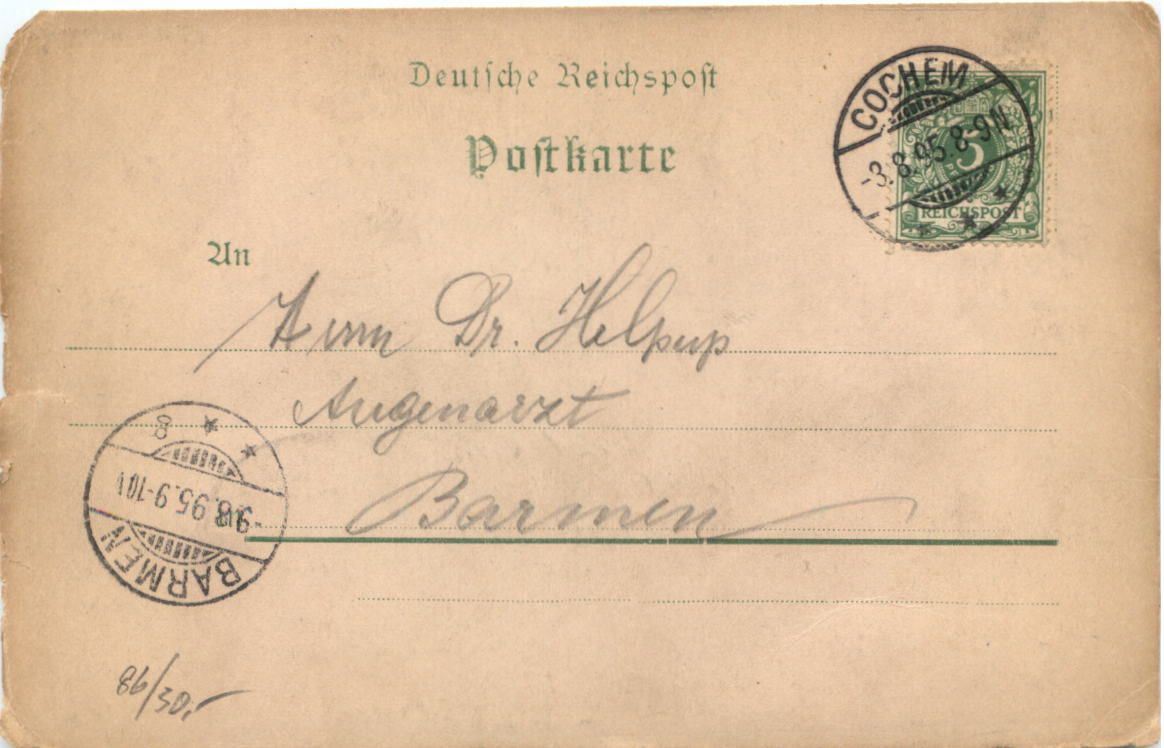 Deutsche Reichspost
Postkarte
COCHEM
-3.8.95.8-9N
5
REICHSPOST
An
Herrn Dr. Helpup
Augenarzt
Barmen
8
.8.95.9-10V
BARMEN
86/30,-